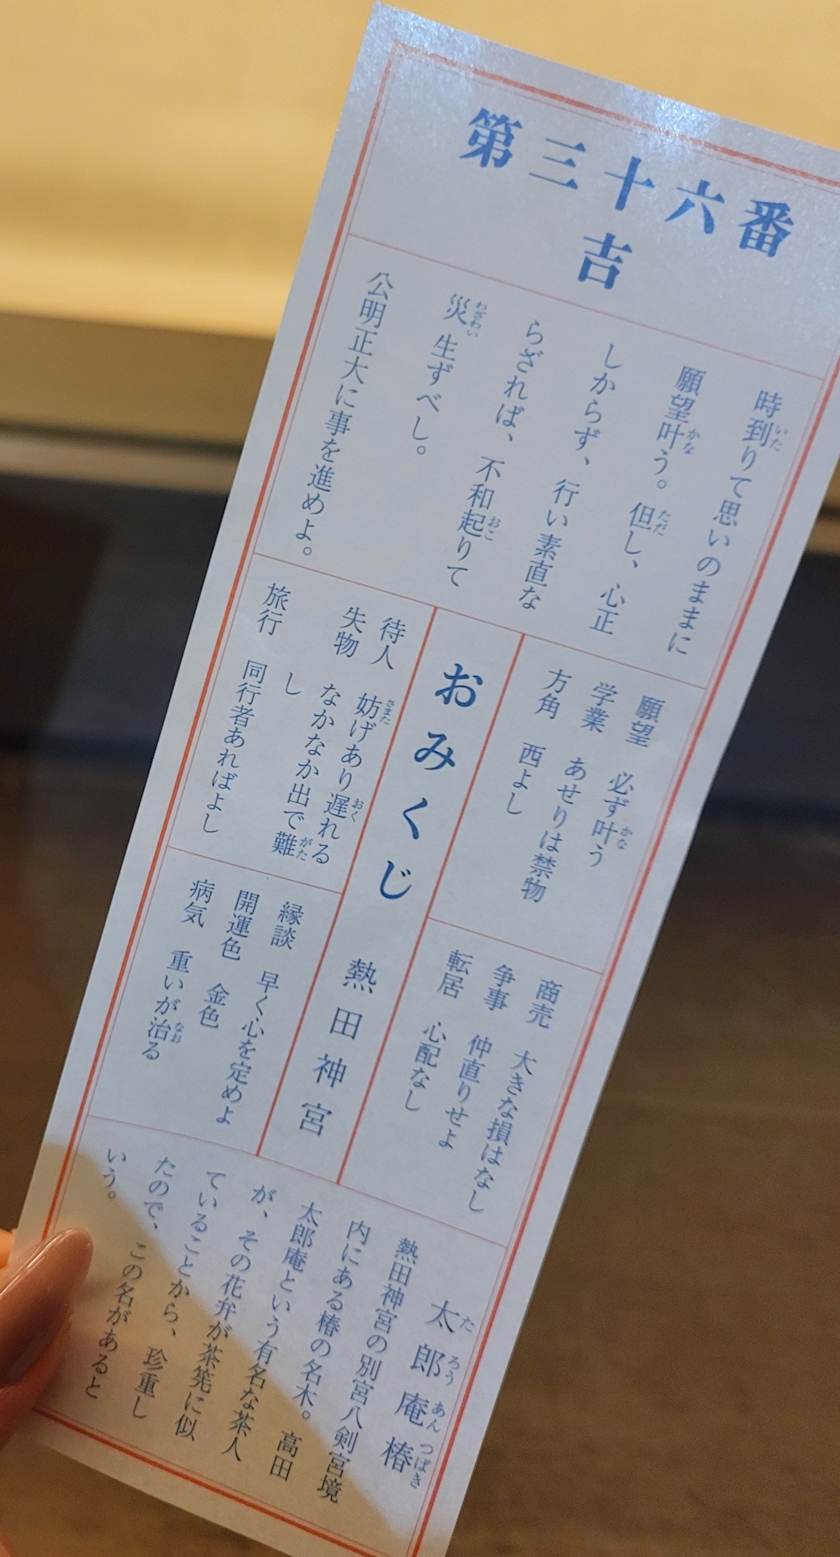 第三十六番
吉
時到りて思いのままに
願望叶う。但し、心正
しからず、行い素直な
らざれば、不和起りて
災生ずべし。
公明正大に事を進めよ。
願望　必ず叶う
学業　あせりは禁物
方角　西よし
商売　大きな損はなし
争事　仲直りせよ
転居　心配なし
おみくじ　熱田神宮
待人　妨げあり遅れる
失物　なかなか出で難
し
旅行　同行者あればよし
縁談　早く心を定めよ
開運色　金色
病気　重いが治る
太郎庵椿
熱田神宮の別宮八剣宮境
内にある椿の名木。高田
太郎庵という有名な茶人
が、その花弁が茶筅に似
ていることから、珍重し
たので、この名があると
いう。